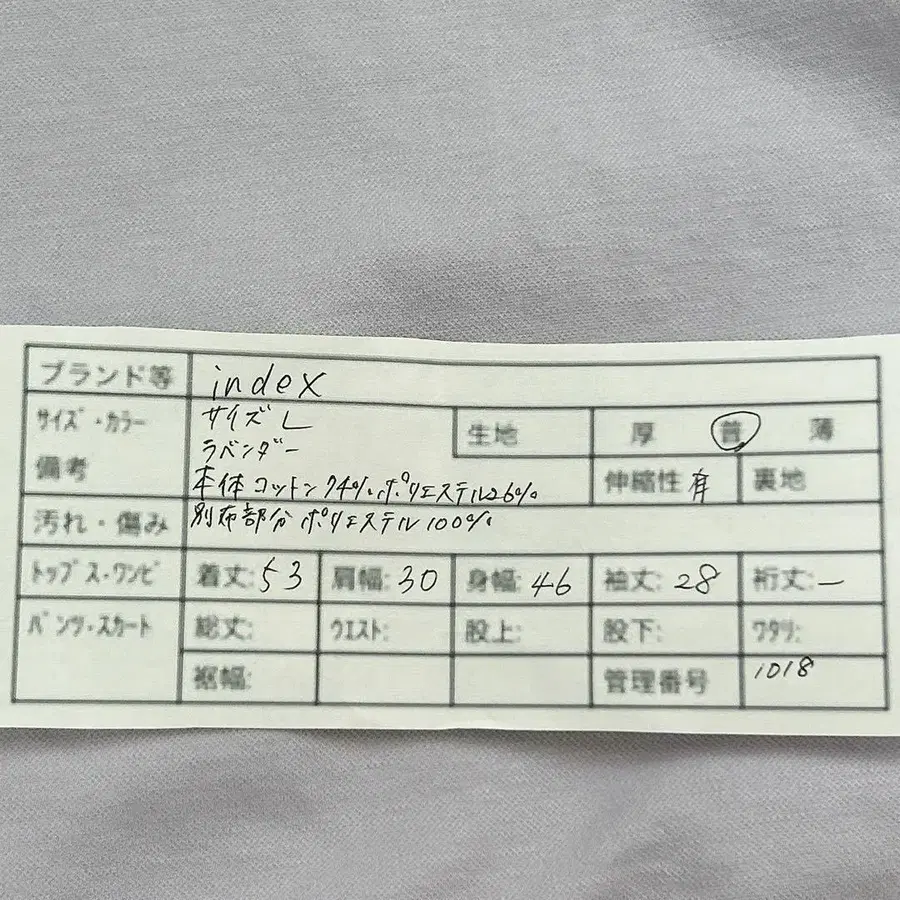 ブランド等 index
サイズ・カラー サイズ L 生地 厚 普 薄
ラベンダー
備考 本体 コットン 74% ポリエステル26% 伸縮性 有 裏地
汚れ・傷み 別布部分 ポリエステル 100%
トップス・ワンピ 着丈:53 肩幅:30 身幅:46 袖丈:28 裄丈:ー
パンツ・スカート 総丈: ウエスト: 股上: 股下: ワタリ:
裾幅: 管理番号 1018